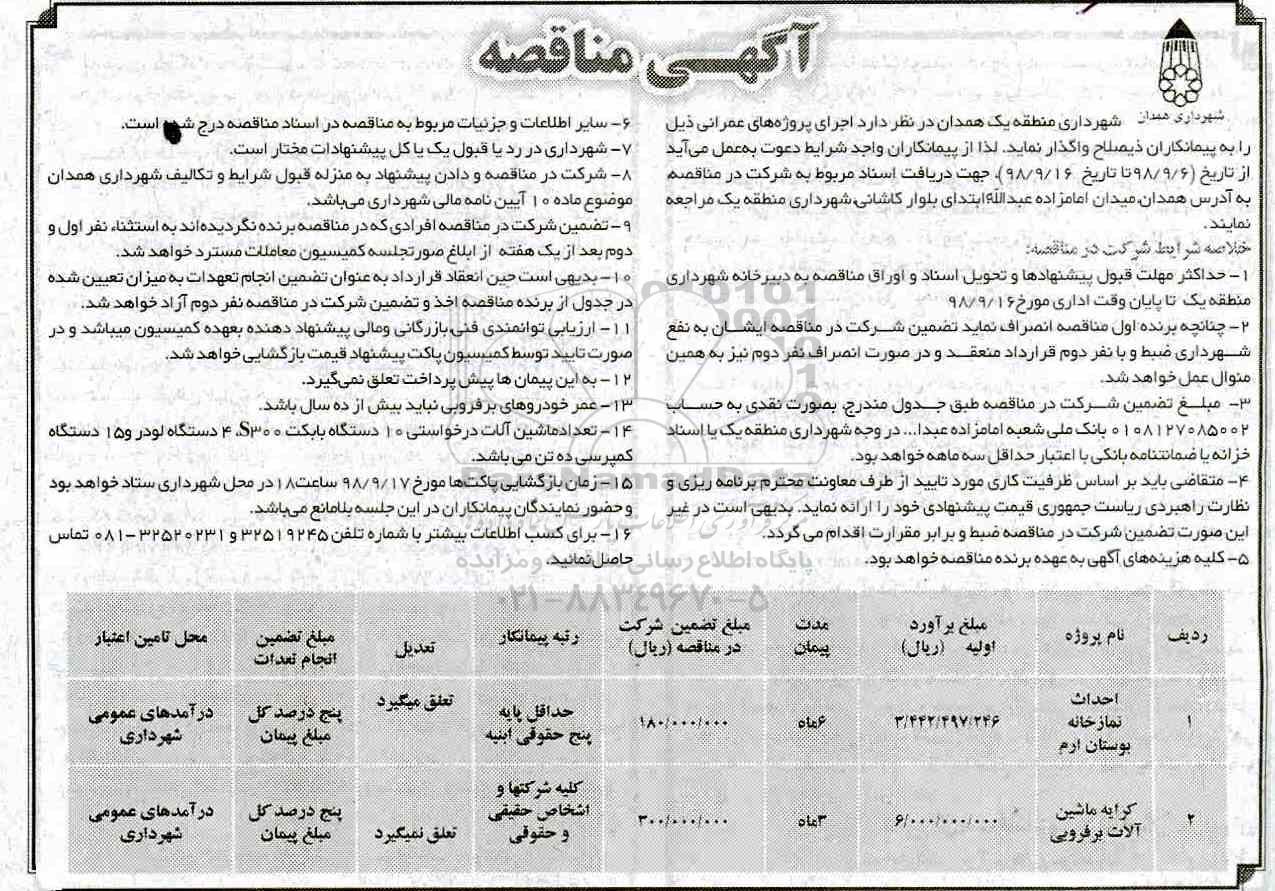 آگهی مناقصه
شهرداری همدان
شهرداری منطقه یک همدان در نظر دارد اجرای پروژه‌های عمرانی ذیل
را به پیمانکاران ذیصلاح واگذار نماید. لذا از پیمانکاران واجد شرایط دعوت به‌عمل می‌آید
از تاریخ (۹۸/۹/۶ تا تاریخ ۹۸/۹/۱۶)، جهت دریافت اسناد مربوط به شرکت در مناقصه،
به آدرس همدان،میدان امامزاده عبدالله‌ابتدای بلوار کاشانی،شهرداری منطقه یک مراجعه
نمایند.
خلاصه شرایط شرکت در مناقصه:
۱- حداکثر مهلت قبول پیشنهادها و تحویل اسناد و اوراق مناقصه به دبیرخانه شهرداری
منطقه یک تا پایان وقت اداری مورخ ۹۸/۹/۱۶
۲- چنانچه برنده اول مناقصه انصراف نماید تضمین شرکت در مناقصه ایشان به نفع
شهرداری ضبط و با نفر دوم قرارداد منعقد و در صورت انصراف نفر دوم نیز به همین
منوال عمل خواهد شد.
۳- مبلغ تضمین شرکت در مناقصه طبق جدول مندرج، بصورت نقدی به حساب
۰۱۰۸۱۲۷۰۸۵۰۰۲ بانک ملی شعبه امامزاده عبدا... در وجه شهرداری منطقه یک یا اسناد
خزانه یا ضمانتنامه بانکی با اعتبار حداقل سه ماهه خواهد بود.
۴- متقاضی باید بر اساس ظرفیت کاری مورد تایید از طرف معاونت محترم برنامه ریزی و
نظارت راهبردی ریاست جمهوری قیمت پیشنهادی خود را ارائه نماید. بدیهی است در غیر
این صورت تضمین شرکت در مناقصه ضبط و برابر مقررات اقدام می گردد.
۵- کلیه هزینه‌های آگهی به عهده برنده مناقصه خواهد بود.
۶- سایر اطلاعات و جزئیات مربوط به مناقصه در اسناد مناقصه درج شده است.
۷- شهرداری در رد یا قبول یک یا کل پیشنهادات مختار است.
۸- شرکت در مناقصه و دادن پیشنهاد به منزله قبول شرایط و تکالیف شهرداری همدان
موضوع ماده ۱۰ آیین نامه مالی شهرداری می‌باشد.
۹- تضمین شرکت در مناقصه افرادی که در مناقصه برنده نگردیده‌اند به استثناء نفر اول و
دوم بعد از یک هفته از ابلاغ صورتجلسه کمیسیون معاملات مسترد خواهد شد.
۱۰- بدیهی است حین انعقاد قرارداد به عنوان تضمین انجام تعهدات به میزان تعیین شده
در جدول از برنده مناقصه اخذ و تضمین شرکت در مناقصه نفر دوم آزاد خواهد شد.
۱۱- ارزیابی توانمندی فنی،بازرگانی ومالی پیشنهاد دهنده بعهده کمیسیون میباشد و در
صورت تایید توسط کمیسیون پاکت پیشنهاد قیمت بازگشایی خواهد شد.
۱۲- به این پیمان ها پیش پرداخت تعلق نمی‌گیرد.
۱۳- عمر خودروهای برفروبی نباید بیش از ده سال باشد.
۱۴- تعدادماشین آلات درخواستی ۱۰ دستگاه بابکت S۳۰۰، ۴ دستگاه لودر و۱۵ دستگاه
کمپرسی ده تن می باشد.
۱۵- زمان بازگشایی پاکت‌ها مورخ ۹۸/۹/۱۷ ساعت۱۸در محل شهرداری ستاد خواهد بود
و حضور نمایندگان پیمانکاران در این جلسه بلامانع می‌باشد.
۱۶- برای کسب اطلاعات بیشتر با شماره تلفن ۳۲۵۱۹۲۴۵ و ۳۲۵۲۰۲۳۱-۰۸۱ تماس
حاصل نمائید.
ParsNamadData
پایگاه اطلاع رسانی مناقصه و مزایده
۰۲۱-۸۸۳۴۹۶۷۰-۵
ردیف نام پروژه مبلغ برآورد اولیه (ریال) مدت پیمان مبلغ تضمین شرکت در مناقصه (ریال) رتبه پیمانکار تعدیل مبلغ تضمین انجام تعدات محل تامین اعتبار
۱ احداث نمازخانه بوستان ارم ۳/۴۴۲/۴۹۷/۲۴۶ ۶ماه ۱۸۰/۰۰۰/۰۰۰ حداقل پایه پنج حقوقی ابنیه تعلق میگیرد پنج درصد کل مبلغ پیمان درآمدهای عمومی شهرداری
۲ کرایه ماشین آلات برفروبی ۶/۰۰۰/۰۰۰/۰۰۰ ۳ماه ۳۰۰/۰۰۰/۰۰۰ کلیه شرکتها و اشخاص حقیقی و حقوقی تعلق نمیگیرد پنج درصد کل مبلغ پیمان درآمدهای عمومی شهرداری